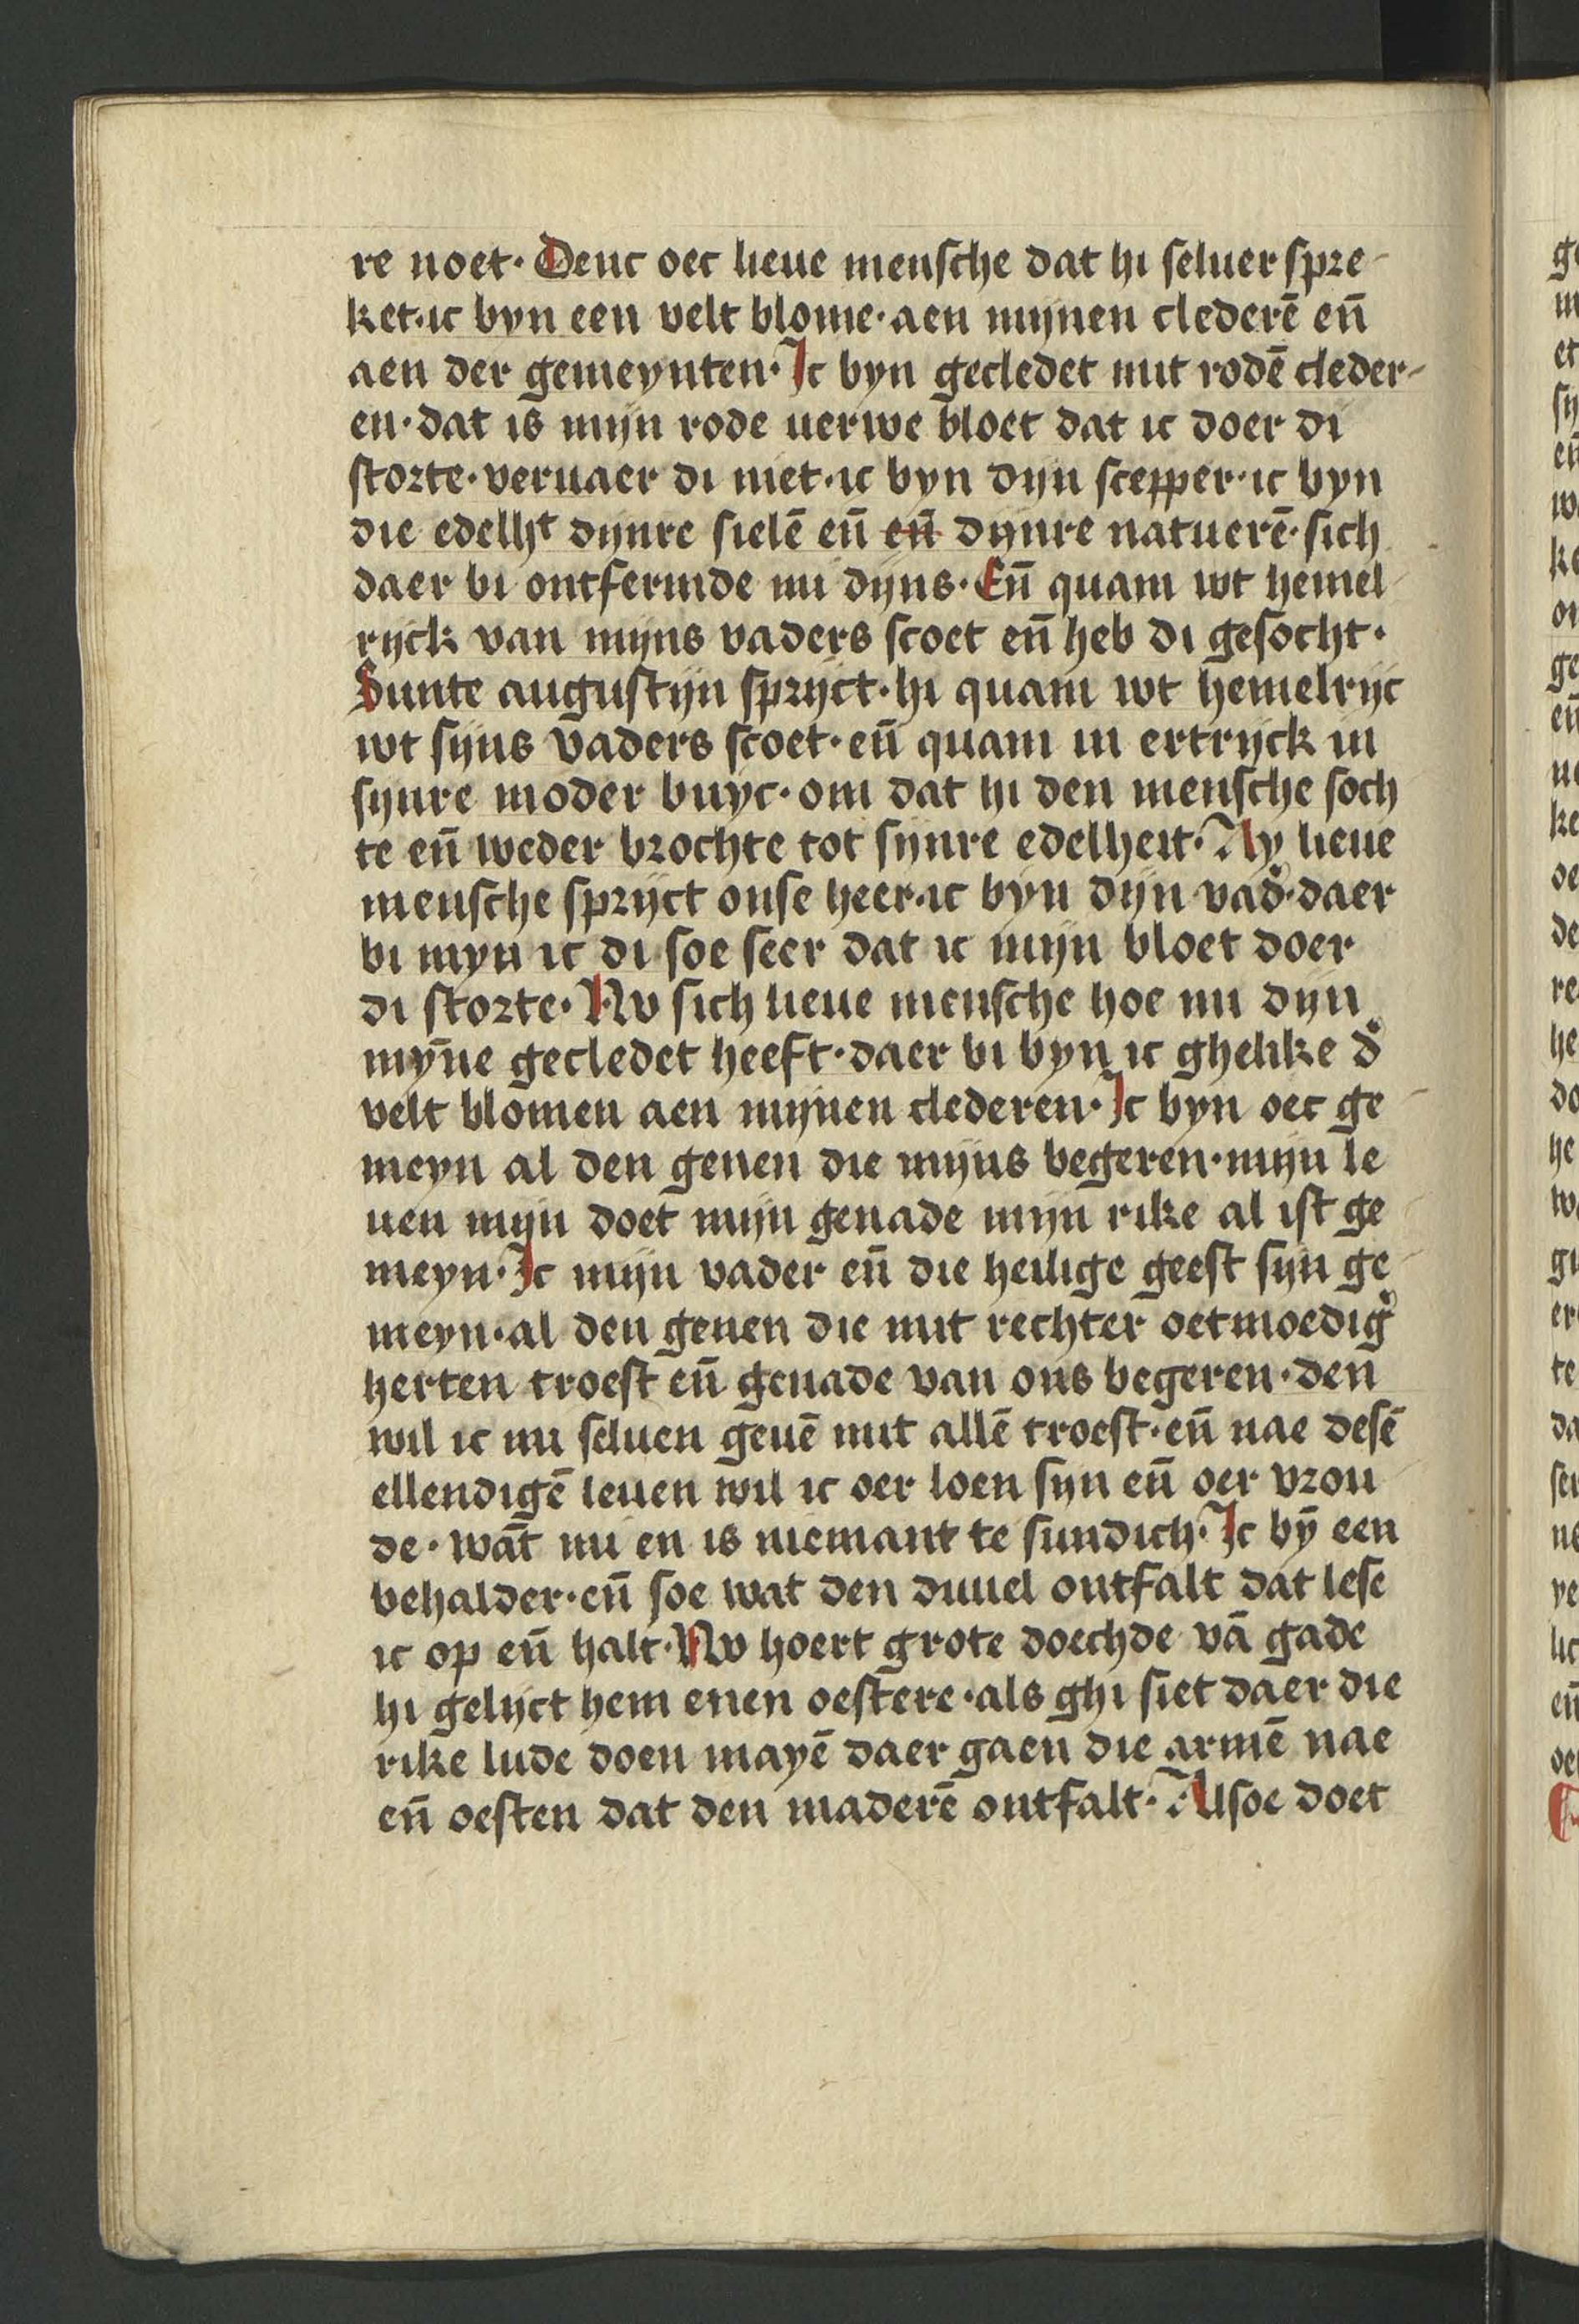 re noet· Denc oec lieue mensche dat hi seluer spre-
ket·ic byn een velt blome·aen mijnen clederē eñ
aen der gemeynten· Ic byn gecledet mit rodē cleder-
en·dat is mijn rode uerwe bloet dat ic doer di
storte·veruaer di niet·ic byn dijn scepper·ic byn
die edelhᵗ dijnre sielē eñ eñ dijnre natuerē·sich
daer bi ontfermde mi dijns· Eñ quam wt hemel-
rijck van mijns vaders scoet eñ heb di gesocht·
Sunte augustijn sprijct·hi quam wt hemelrijc
wt sijns vaders scoet·eñ quam in ertrijck in
sijnre moder buyc·om dat hi den mensche soch
te eñ weder brochte tot sijnre edelheit· Ay lieue
mensche sprijct onse heer·ic byn dijn vad̉·daer
bi myn ic di soe seer dat ic mijn bloet doer
di storte· Nv sich lieue mensche hoe mi dijn
mȳne gecledet heeft·daer bi byn ic ghelike d̉
velt blomen aen mijnen clederen· Ic byn oec ge-
meyn al den genen die mijns begeren·mijn le
uen mijn doet mijn genade mijn rike al ist ge-
meyn· Ic mijn vader eñ die heilige geest sijn ge-
meyn·al den genen die mit rechter oetmoedig̉
herten troest eñ genade van ons begeren·den
wil ic mi seluen geuē mit allē troest·eñ nae desē
ellendigē leuen wil ic oer loen sijn eñ oer vrou-
de·wāt mi en is niemant te sundich· Ic bȳ een
behalder·eñ soe wat den duuel ontfalt dat lese
ic op eñ halt· Nv hoert grote doechde vā gade
hi gelijct hem enen oestere·als ghi siet daer die
rike lude doen mayē daer gaen die armē nae
eñ oesten dat den maderē ontfalt· Alsoe doet